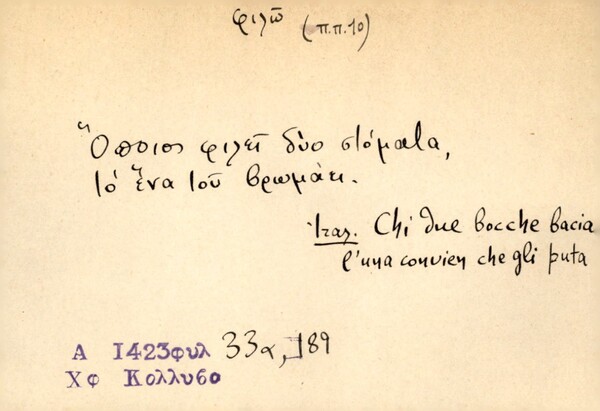 φιλῶ (π.π.10)
Ὅποιος φιλεῖ δύο στόματα,
τό ἕνα τοῦ βρωμάει.
Ἰταλ. Chi due bocche bacia
l'una convien che gli puta
Α 1423φυλ 33α, 189
Χφ Κολλυβο